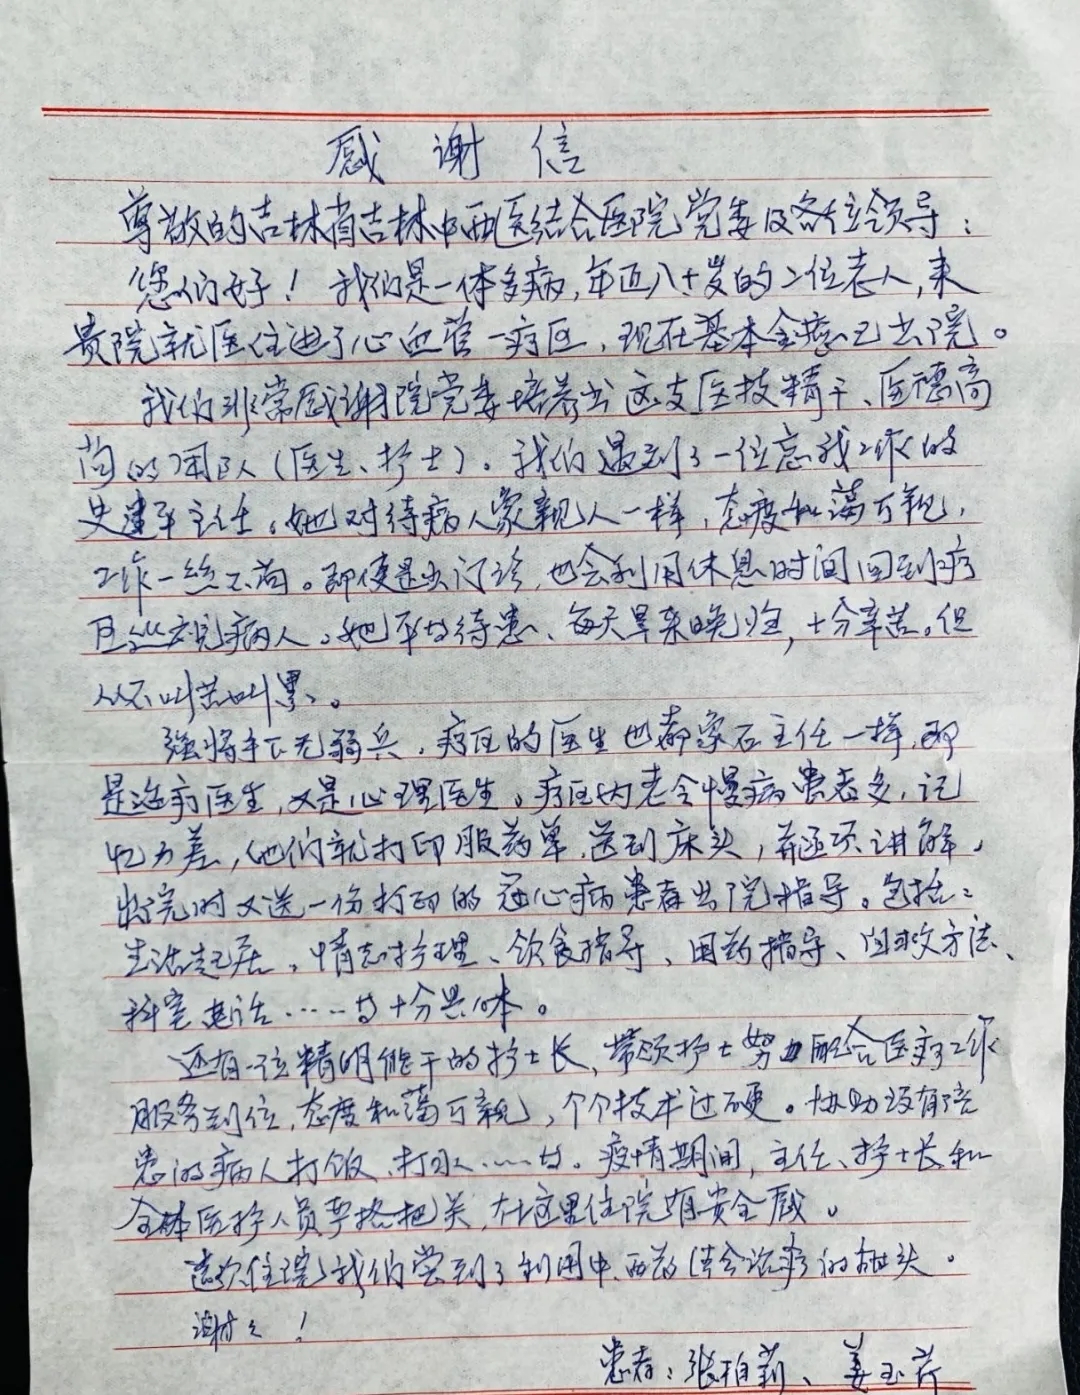 感谢信
尊敬的吉林省吉林中西医结合医院党委及各位领导:
您们好！我们是一体多病,年近八十岁的二位老人,来
贵院就医住进了心血管一病区,现在基本全愈已出院。
我们非常感谢院党委培养出这支医技精干、医德高
尚的团队(医生、护士)。我们遇到了一位忘我工作的
史建平主任。她对待病人家亲人一样,态度和蔼可亲,
工作一丝不苟。即使是出门诊,也会利用休息时间回到病
区巡视病人。她平等待患、每天早来晚归,十分辛苦。但
从不叫苦叫累。
强将手下无弱兵,病区的医生也都家石主任一样,即
是治病医生,又是心理医生。病区内老令慢病患者多,记
忆力差,他们就打印服药单,送到床头,并逐项讲解。
出院时又送一份打印的冠心病患者出院指导。包括:
生活起居、情志护理、饮食指导、用药指导、自救方法、
科室电话……等十分具体。
还有一位精明能干的护士长,带领护士努力配合医疗工作
服务到位,态度和蔼可亲,个个技术过硬。协助没有陪
患的病人打饭、打水……等。疫情期间,主任、护士长和
全体医护人员严格把关,在这里住院有安全感。
这次住院,我们尝到了利用中、西药结合治疗的甜头。
谢谢！
患者:张柏莉、姜玉芹